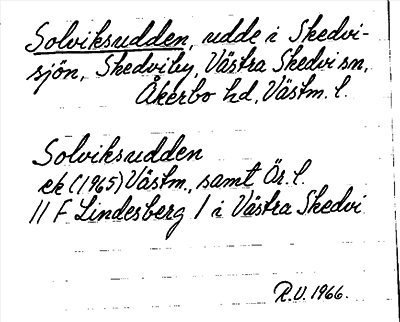 Solviksudden, udde i Skedvi-
sjön, Skedviby, Västra Skedvi sn,
Åkerbo hd, Västm. l.
Solviksudden
ek (1965) Västm., samt Ör. l.
11 F Lindesberg 1 i Västra Skedvi
R.U. 1966.